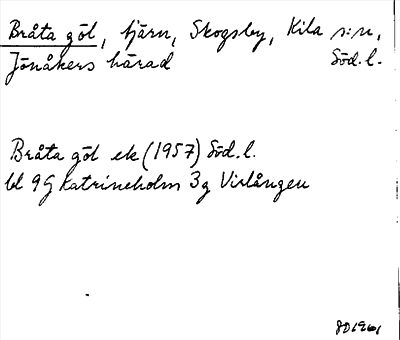 Bråta göl, tjärn, Skogsby, Kila sn,
Jönåkers härad Söd. l.
Bråta göl ek (1957) Söd. l.
bl 9G Katrineholm 3g Virlången
JD 1961